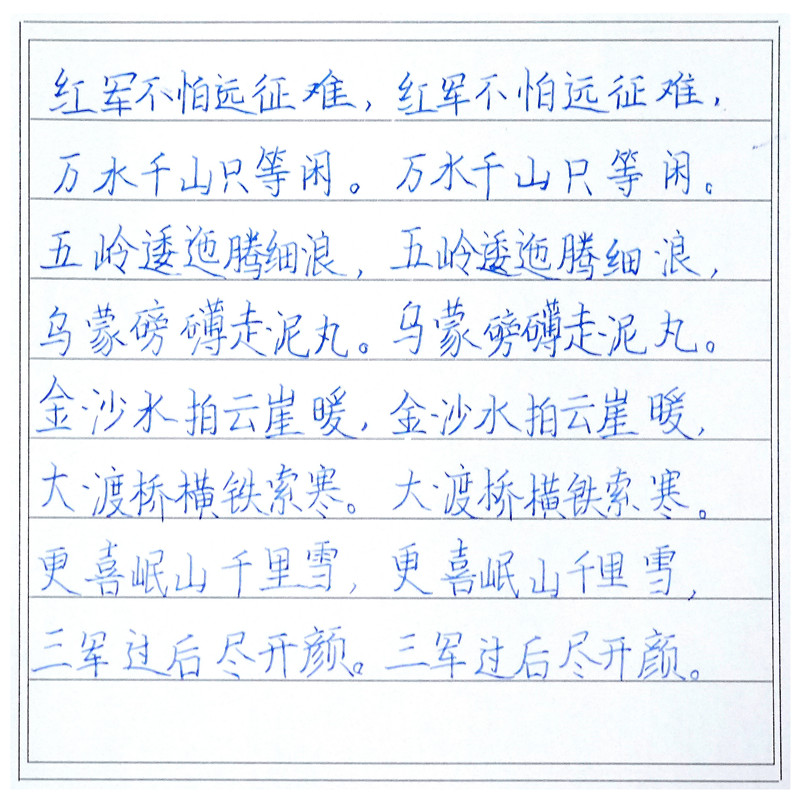 红军不怕远征难，红军不怕远征难，
万水千山只等闲。万水千山只等闲。
五岭逶迤腾细浪，五岭逶迤腾细浪，
乌蒙磅礴走泥丸。乌蒙磅礴走泥丸。
金沙水拍云崖暖，金沙水拍云崖暖，
大渡桥横铁索寒。大渡桥横铁索寒。
更喜岷山千里雪，更喜岷山千里雪，
三军过后尽开颜。三军过后尽开颜。